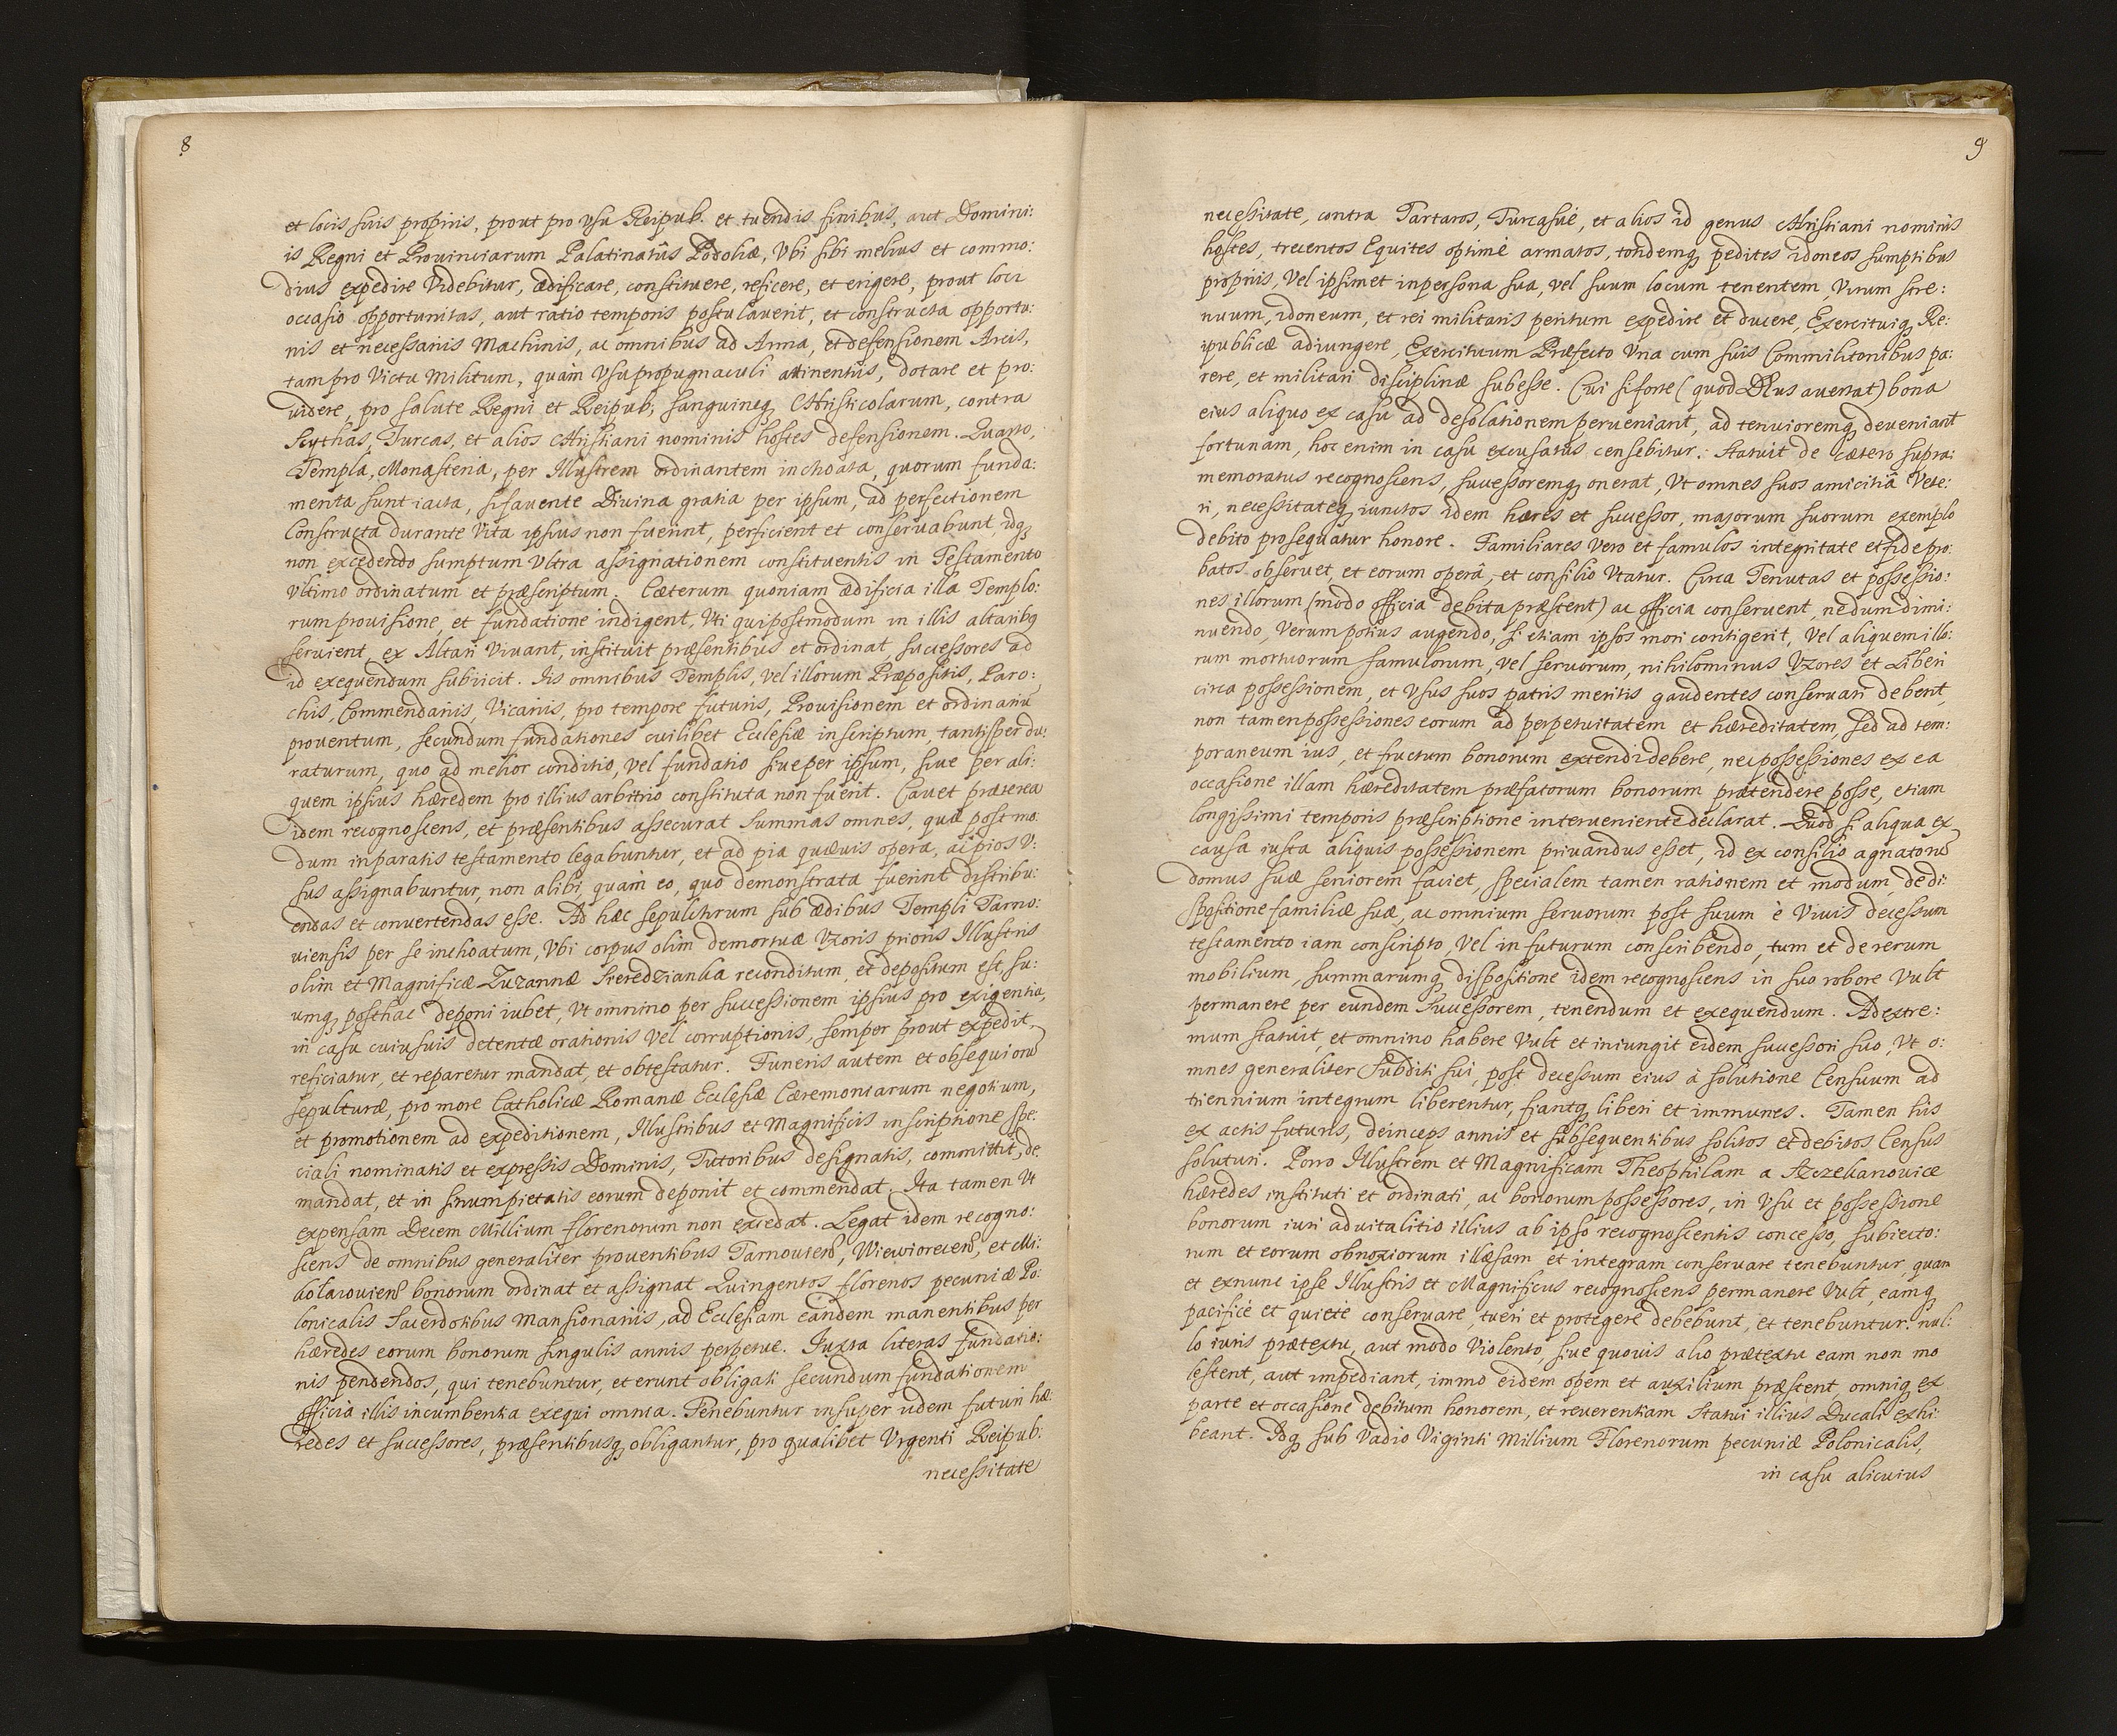 8
et locis suis proprijs, prout pro vsu Reipub. et tuendis finibus, aut Domini:
is Regni et Prouinciarum Palatinatûs Podoliæ, Vbi sibi melius et commo:
dius expedire Videbitur, ædificare, constituere, reficere, et erigere, prout loci
occasio opportunitas, aut ratio temporis postulauerit, et constructa opportu:
nis et necessarijs Machinis, ac omnibus ad Arma, et defensionem Arcis,
tam pro Victu Militum, quàm Vsu propugnaculi attinentijs, dotare et pro:
uidere, pro salute Regni et Reipub; sanguinisq Christicolarum, contra
Scythas, Turcas, et alios Christiani nominis hostes defensionem. Quarto,
Templa, Monasteria, per Illustrem ordinantem inchoata, quorum funda:
menta sunt iacta, si fauente Diuina gratia per ipsum, ad perfectionem
Constructa durante Vita ipsius non fuerint, perficient et conseruabunt, idq
non excedendo sumptum Vltra assignationem constituentis in Testamento
Vltimo ordinatum et præscriptum. Cæterum quoniam ædificia illa Templo:
rum prouisione, et fundatione indigent, Vti qui postmodum in illis altaribq
seruient, ex Altari Viuant, instituit præsentibus et ordinat, successores ad
id exequendum subijcit. Iis omnibus Templis, vel illorum Præpositis, Paro:
chis, Commendarijs, Vicarijs, pro tempore futuris, Prouisionem et ordinariũ
prouentum, secundum fundationes cuilibet Ecclesiæ inscriptum, tantisper du:
raturum, quo ad melior conditio, vel fundatio siue per ipsum, siue per ali:
quem ipsius hæredem pro illius arbitrio constituta non fuerit. Cauet præterea
idem recognoscens, et præsentibus assecurat Summas omnes, quæ post mo:
dum in paratis testamento legabuntur, et ad pia quæuis opera, ac pios V:
sus assignabuntur, non alibi, quàm eo, quo demonstrata fuerint distribu:
endas et conuertendas esse. Ad hæc sepulchrum sub ædibus Templi Tarno:
uiensis per se inchoatum, Vbi corpus olim demortuæ Vxoris prioris Illustris
olim et Magnificæ Zuzannæ Sieredzianka reconditum, et depositum est, su:
umq posthac deponi iubet, Vt omnino per successionem ipsius pro exigentia,
in casu cuiusuis detentæ orationis vel corruptionis, semper prout expedit,
reficiatur, et reparetur mandat, et obtestatur. Funeris autem et obsequiorũ
sepulturæ, pro more Catholicæ Romanæ Ecclesiæ Cæremoniarum negotium,
et promotionem ad expeditionem, Illustribus et Magnificis inscriptione spe:
ciali nominatis et expressis Dominis, Tutoribus designatis, committit, de:
mandat, et in sinum pietatis eorum deponit et commendat. Ita tamen Vt
expensam Decem Millium florenorum non exedat. Legat idem recogno:
scens de omnibus generaliter prouentibus Tarnouien, Wiewiorecen, et Mi:
kolaiouien bonorum ordinat et assignat Quingentos florenos pecuniæ Po:
lonicalis Sacerdotibus Mansionarijs, ad Ecclesiam eandem manentibus per
hæredes eorum bonorum singulis annis perpetue. Iuxta literas fundatio:
nis pendendos, qui tenebuntur, et erunt obligati secundum fundationem
officia illis incumbentia exequi omnia. Tenebuntur insuper ijdem futuri hæ:
redes et successores, præsentibusq obligantur, pro qualibet Vrgenti Reipub:
necessitate
9
necessitate, contra Tartaros, Turcasúe, et alios id genus Christiani nominis
hostes, trecentos Equites optimè armatos, totidemq pedites idoneos sumptibus
proprijs, vel ipsimet in persona sua, vel suum locum tenentem, Virum stre:
nuum, idoneum, et rei militaris peritum expedire et ducere, Exercituiq Re:
ipublicæ adiungere, Exercituum Præfecto Vna cum suis Commilitonibus pa:
rere, et militari disciplinæ subesse. Cui si forte (quod DEus auertat) bona
eius aliquo ex casu ad desolationem perueniant, ad tenuioremq deueniant
fortunam, hoc enim in casu excusatus censebitur. Statuit de cætero supra:
memoratus recognoscens, successoremq onerat, Vt omnes suos amicitiâ Vete:
ri, necessitateq iunctos idem hæres et successor, majorum suorum exemplo
debito prosequatur honore. Familiares vero et famulos integritate et fide pro:
batos obseruet, et eorum operâ, et consilio Vtatur. Circa Tenutas et possessio:
nes illorum (modo officia debita præstent) ac officia conseruent, nedum dimi:
nuendo, verum potius augendo, si etiam ipsos mori contigerit, vel aliquem illo:
rum mortuorum famulorum, vel seruorum, nihilominus Vxores et Liberi
circa possessionem, et Vsus suos patris meritis gaudentes conseruari debent,
non tamen possessiones eorum ad perpetuitatem et hæreditatem, sed ad tem:
poraneum ius, et fructum bonorum extendi debere, nec possessiones ex ea
occasione illam hæreditatem præfatorum bonorum prætendere posse, etiam
longissimi temporis præscriptione interueniente declarat. Quod si aliqua ex
causa iusta aliquis possessionem priuandus esset, id ex consilio agnatorũ
domus suæ seniorem faciet, specialem tamen rationem et modum, de di:
spositione familiæ suæ, ac omnium seruorum post suum è Viuis decessum
testamento iam conscripto, vel in futurum conscribendo, tum et de rerum
mobilium, summarumq dispositione idem recognoscens in suo robore Vult
permanere per eundem Successorem, tenendum et exequendum. Ad extre:
mum statuit, et omnino habere Vult et iniungit eidem successori suo, Vt o:
mnes generaliter Subditi sui, post decessum eius à solutione Censuum ad
triennium integrum liberentur, fiantq liberi et immunes. Tamen his
ex actis futuris, deinceps annis et subsequentibus solitos et debitos Census
soluturi. Porro Illustrem et Magnificam Theophilam a Rzezekanowicæ
hæredes instituti et ordinati, ac bonorum possessores, in Vsu et possessione
bonorum iuri aduitalitio illius ab ipso recognoscentis concesso, subiecto:
rum et eorum obnoxiorum illæsam et integram conseruare tenebuntur, quam
et exnunc ipse Illustris et Magnificus recognoscens permanere Vult, eamq
pacificè et quietè conseruare, tueri et protegere debebunt, et tenebuntur. nul:
lo iuris prætextu, aut modo Violento, siue quouis alio prætextu eam non mo
lestent, aut impediant, immo eidem opem et auxilium præstent, omniq ex
parte et occasione debitum honorem, et reuerentiam Statui illius Ducali exhi:
beant. Idq sub Vadio Viginti Millium Florenorum pecuniæ Polonicalis,
in casu alicuius